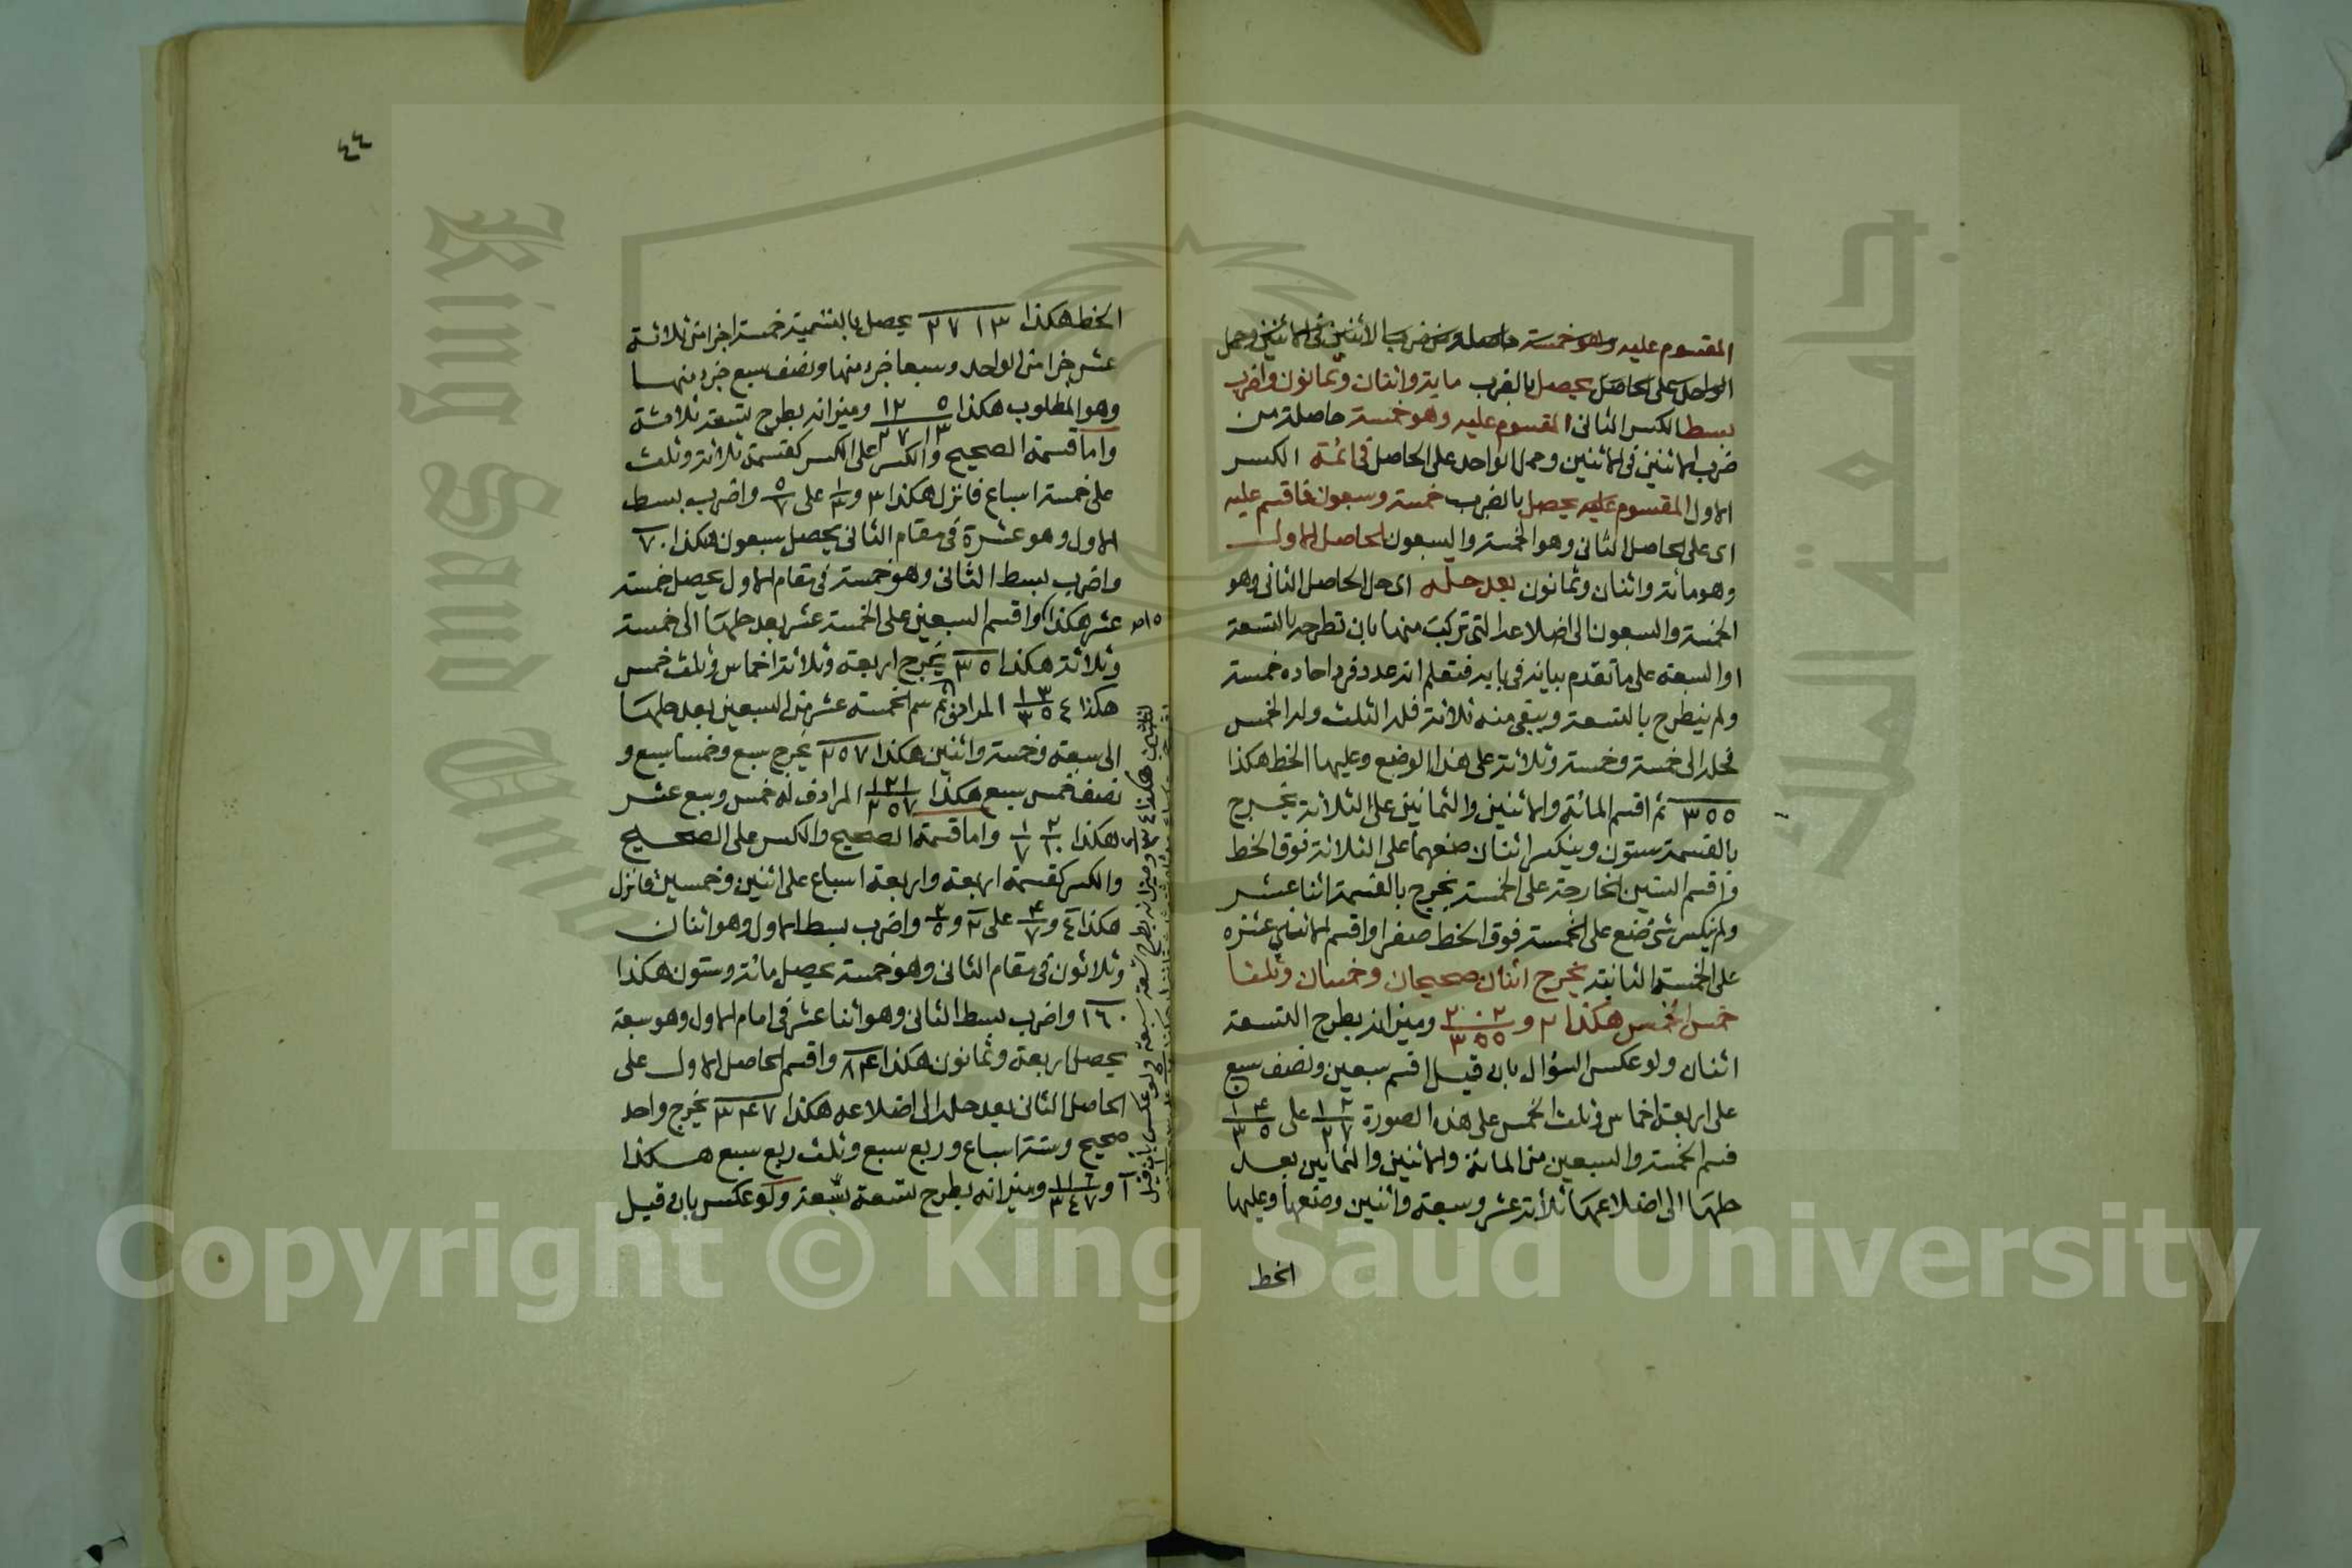 المقسوم عليه وهو خمسة حاصلة من ضرب الاثنين فى الاثنين وحمل
الواحد على الحاصل يحصل بالضرب ماية واثنان وثمانون واضرب
بسط الكسر الثانى المقسوم عليه وهو خمسة حاصلة من
ضرب الاثنين فى الاثنين وحمل الواحد على الحاصل فى ائمة الكسر
الاول المقسوم عليه يحصل بالضرب خمسة وسبعون فاقسم عليه
اى على الحاصل الثانى وهو الخمسة والسبعون الحاصل الاول
وهو مائة واثنان وثمانون بعد حله اى حل الحاصل الثانى وهو
الخمسة والسبعون الى اضلاعه التى تركبت منها بان تطرحه بالتسعة
او السبعة على ما تقدم بيانه فى بابه فتعلم انه عدد فرد احاده خمسة
ولم ينطرح بالتسعة ويبقى منه ثلاثة فله الثلث وله الخمس
فحله الى خمسة وخمسة وثلاثة على هذا الوضع وعليها الخط هكذا
٣٥٥ ثم اقسم المائة والاثنين والثمانين على الثلاثة يخرج
بالقسمة ستون وينكسر اثنان ضعهما على الثلاثة فوق الخط
واقسم الستين الخارجة على الخمسة يخرج بالقسمة اثنا عشر
ولم ينكسر شئ ضع على الخمسة فوق الخط صفرا واقسم الاثنى عشرة
على الخمسة الثانية يخرج اثنان صحيحان وخمسان وثلثا
خمس الخمس هكذا ٢ و ٢٠٢ / ٣٥٥ وميزانه بطرح التسعة
اثنان ولو عكس السؤال بان قيل اقسم سبعين ونصف سبع
على اربعة اخماس وثلث الخمس على هذه الصورة ١٢ / ٢٧ على ١٤ / ٣٥
فسم الخمسة والسبعين من المائة والاثنين والثمانين بعد
حلها الى اضلاعها ثلاثة عشر وسبعة واثنين وضعها وعليها
الخط
٤٤
الخط هكذا ١٣ ٢٧ يحصل بالتسمية خمسة اجزا من ثلاثة
عشر جزا من الواحد وسبعا جزء منها ونصف سبع جزء منها
وهو المطلوب هكذا ٥ ١٢ / ١٣ ٢٧ وميزانه بطرح تسعة ثلاثة
واما قسمة الصحيح والكسر على الكسر كقسمة ثلاثة وثلث
على خمسة اسباع فانزل هكذا ٣ و ١/٣ على ٥/٧ واضرب بسط
الاول وهو عشرة فى مقام الثانى يحصل سبعون هكذا ٧٠
واضرب بسط الثانى وهو خمسة فى مقام الاول يحصل خمسة
عشر هكذا ١٥ واقسم السبعين على الخمسة عشر بعد حلها الى خمسة
وثلاثة هكذا ٣٥ يخرج اربعة وثلاثة اخماس وثلث خمس
هكذا ٤ ١٣ / ٣٥ المرادف ثم سم الخمسة عشر من السبعين بعد حلها
الى سبعة وخمسة واثنين هكذا ٢٥٧ يخرج سبع وخمسا سبع و
نصف خمس سبع هكذا ١٢١ / ٢٥٧ المرادف له خمس وسبع عشر
هكذا ٢/١٠ ١/٧ واما قسمة الصحيح والكسر على الصحيح
والكسر كقسمة اربعة واربعة اسباع على اثنين وخمسين فانزل
هكذا ٤ و ٤/٧ على ٢ و ٢/٥ واضرب بسط الاول وهو اثنان
وثلاثون فى مقام الثانى وهو خمسة يحصل مائة وستون هكذا
١٦٠ واضرب بسط الثانى وهو اثنا عشر فى امام الاول وهو سبعة
يحصل اربعة وثمانون هكذا ٨٤ واقسم الحاصل الاول على
الحاصل الثانى بعد حله الى اضلاعه هكذا ٣٤٧ يخرج واحد
صحيح وستة اسباع وربع سبع وثلث ربع سبع هكذا
١ و ١١٦ / ٣٤٧ وميزانه بطرح تسعة سبعة ولو عكس بان قيل